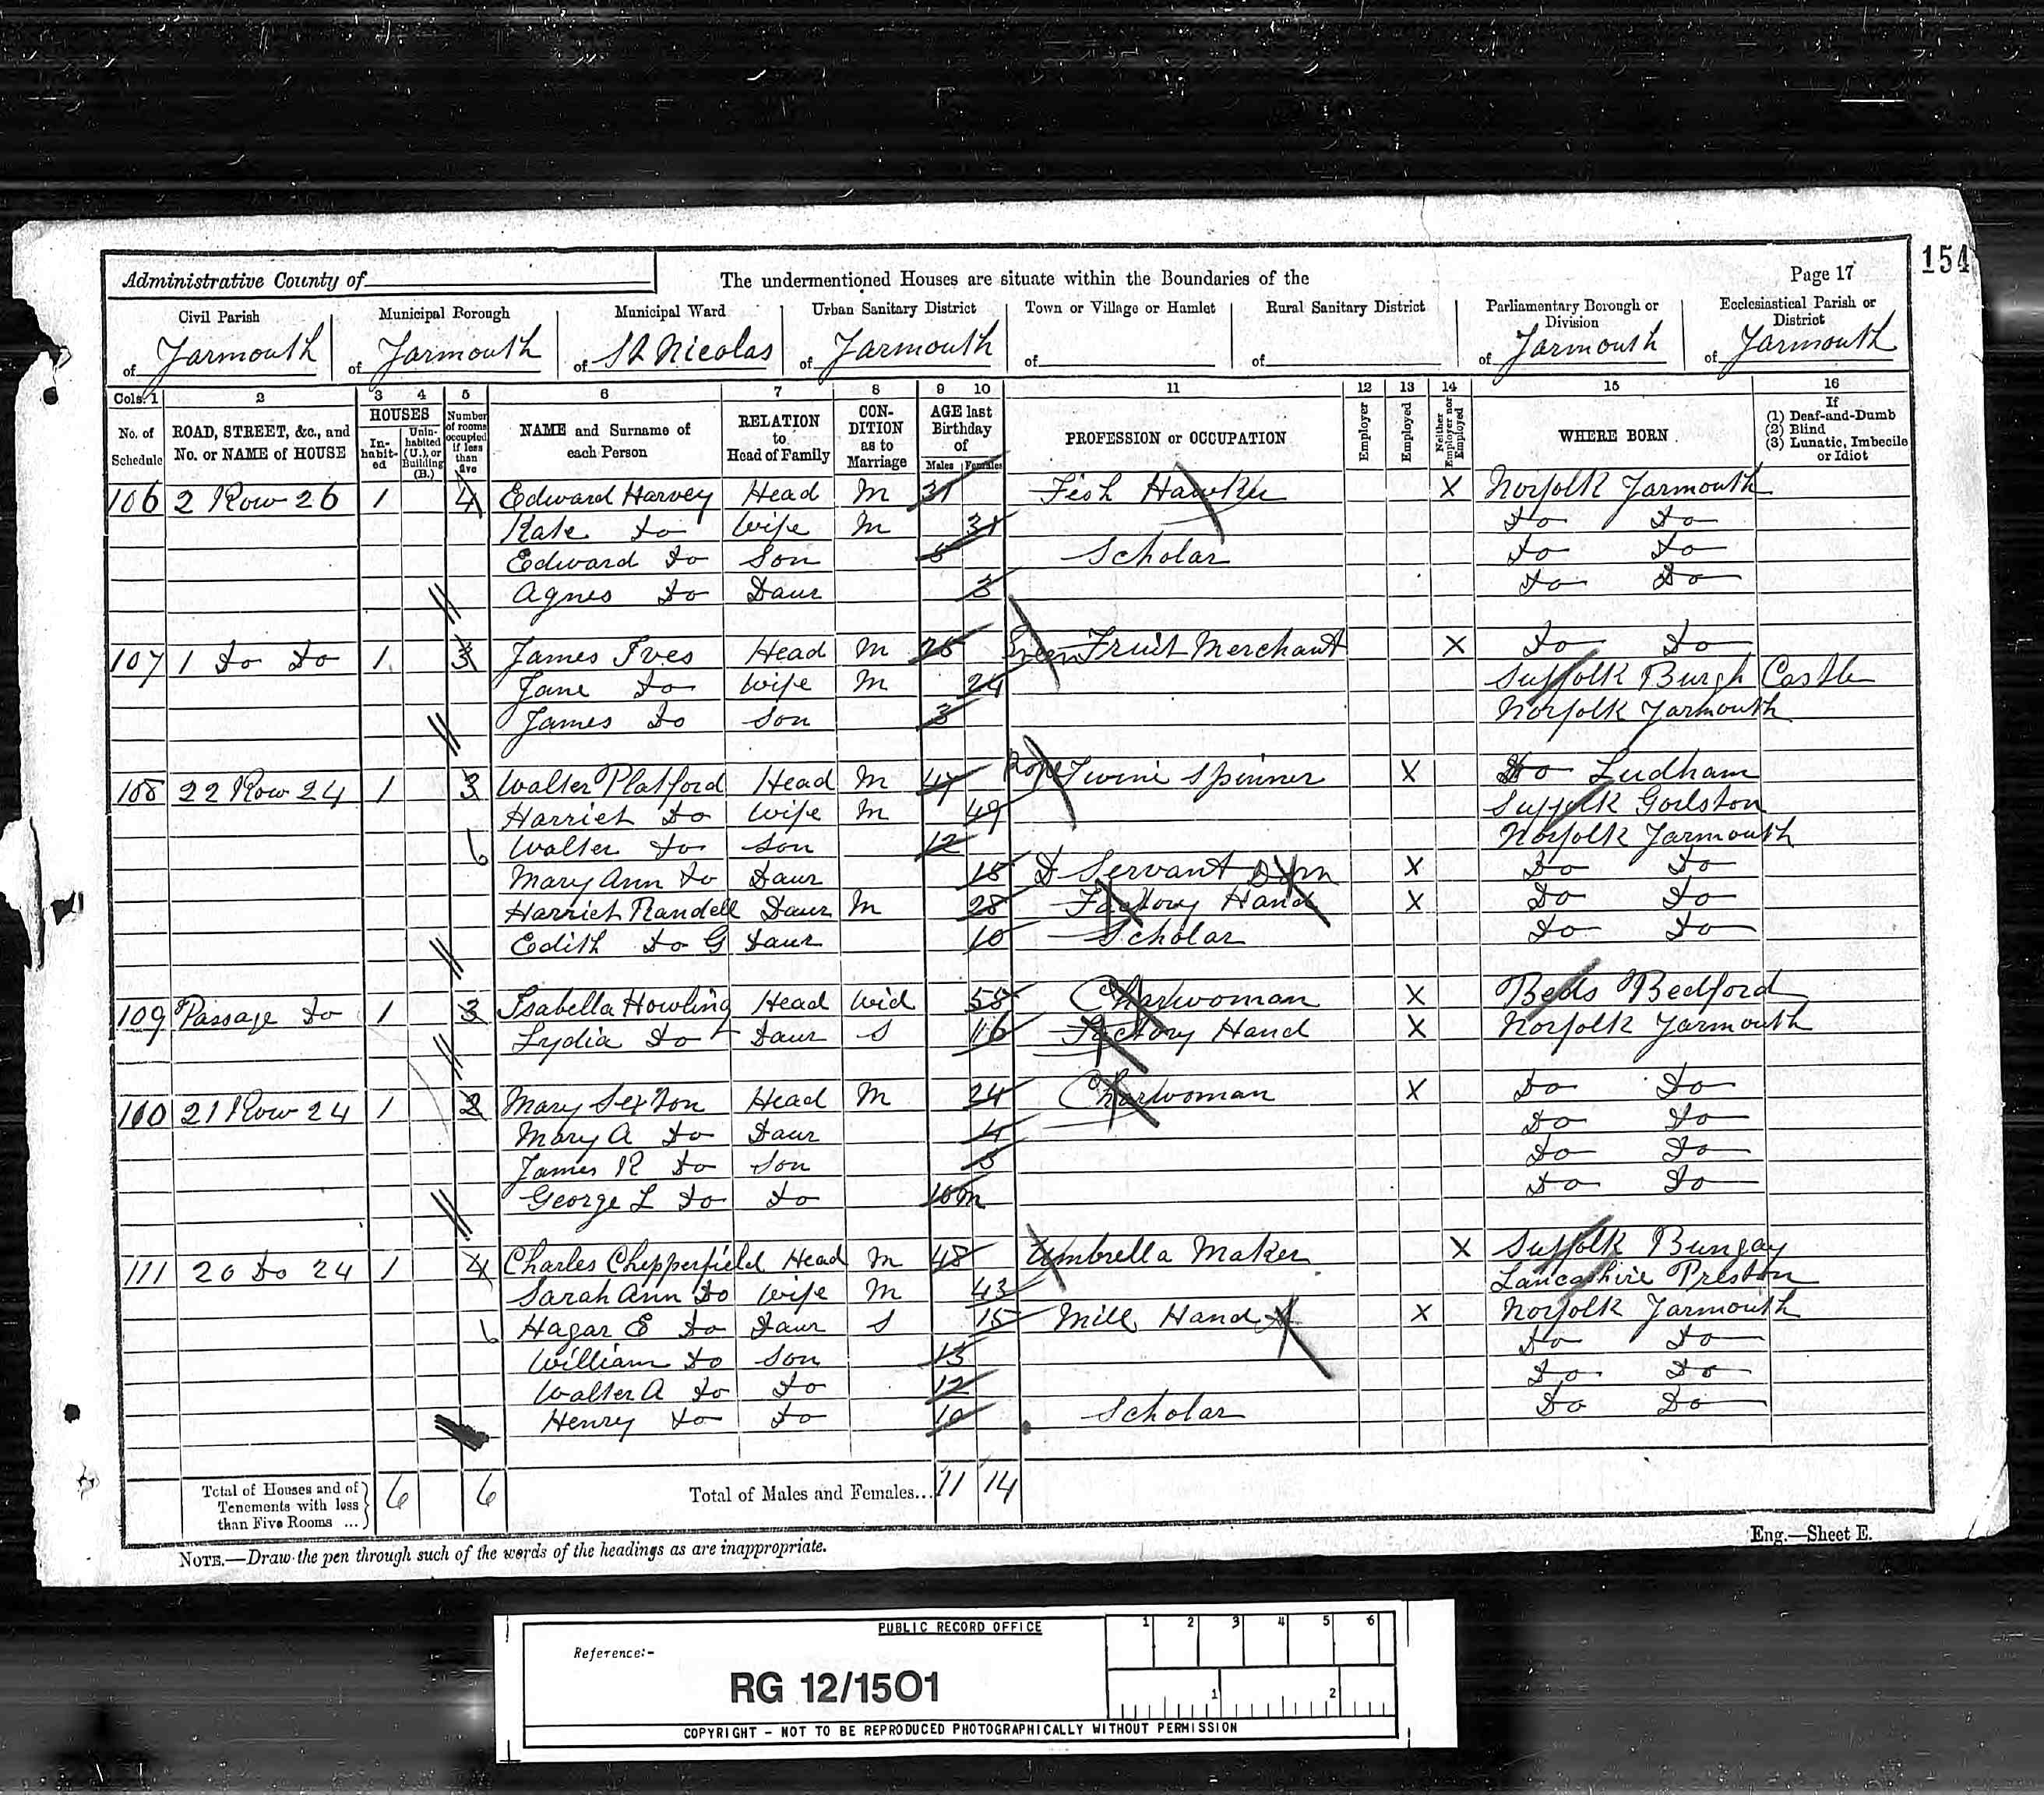 154
Administrative County of
The undermentioned Houses are situate within the Boundaries of the
Page 17
Civil Parish
of Yarmouth
Municipal Borough
of Yarmouth
Municipal Ward
of St Nicolas
Urban Sanitary District
of Yarmouth
Town or Village or Hamlet
of
Rural Sanitary District
of
Parliamentary Borough or Division
of Yarmouth
Ecclesiastical Parish or District
of Yarmouth
Cols. 1 2 3 4 5 6 7 8 9 10 11 12 13 14 15 16
No. of Schedule
ROAD, STREET, &c., and No. or NAME of HOUSE
HOUSES
In-habit-ed
Unin-habited (U.), or Building (B.)
Number of rooms occupied if less than five
NAME and Surname of each Person
RELATION to Head of Family
CON-DITION as to Marriage
AGE last Birthday of
Males Females
PROFESSION or OCCUPATION
Employer
Employed
Neither Employer nor Employed
WHERE BORN
If
(1) Deaf-and-Dumb
(2) Blind
(3) Lunatic, Imbecile or Idiot
106 2 Row 26 1 4 Edward Harvey Head M 31 Fish Hawker X Norfolk Yarmouth
Kate Do Wife M 31 Do Do
Edward Do Son 5 Scholar Do Do
Agnes Do Daur 3 Do Do
107 1 Do Do 1 3 James Ives Head M 26 Green Fruit Merchant X Do Do
Jane Do Wife M 24 Suffolk Burgh Castle
James Do Son 3 Norfolk Yarmouth
108 22 Row 24 1 3 Walter Platford Head M 47 Rope Twine Spinner X Do Ludham
Harriet Do Wife M 49 Suffolk Gorlston
6 Walter Do Son 12 Norfolk Yarmouth
Mary Ann Do Daur 18 D Servant Dom X Do Do
Harriet Randell Daur M 28 Factory Hand X Do Do
Edith Do G Daur 10 Scholar Do Do
109 Passage Do 1 3 Isabella Howling Head Wid 58 Charwoman X Beds Bedford
Lydia Do Daur S 16 Factory Hand X Norfolk Yarmouth
110 21 Row 24 1 2 Mary Sexton Head M 24 Charwoman X Do Do
Mary A Do Daur 4 Do Do
James R Do Son 3 Do Do
George L Do Do 10m Do Do
111 20 Do 24 1 4 Charles Chepperfield Head M 48 Umbrella Maker X Suffolk Bungay
Sarah Ann Do Wife M 43 Lancashire Preston
6 Hagar E Do Daur S 15 Mill Hand X Norfolk Yarmouth
William Do Son 13 Do Do
Walter A Do Do 12 Do Do
Henry Do Do 10 Scholar Do Do
Total of Houses and of Tenements with less than Five Rooms ... 6 6
Total of Males and Females... 11 14
Eng.—Sheet E.
NOTE.—Draw the pen through such of the words of the headings as are inappropriate.
PUBLIC RECORD OFFICE
1 2 3 4 5 6
Reference:-
RG 12/1501
1 2
COPYRIGHT - NOT TO BE REPRODUCED PHOTOGRAPHICALLY WITHOUT PERMISSION